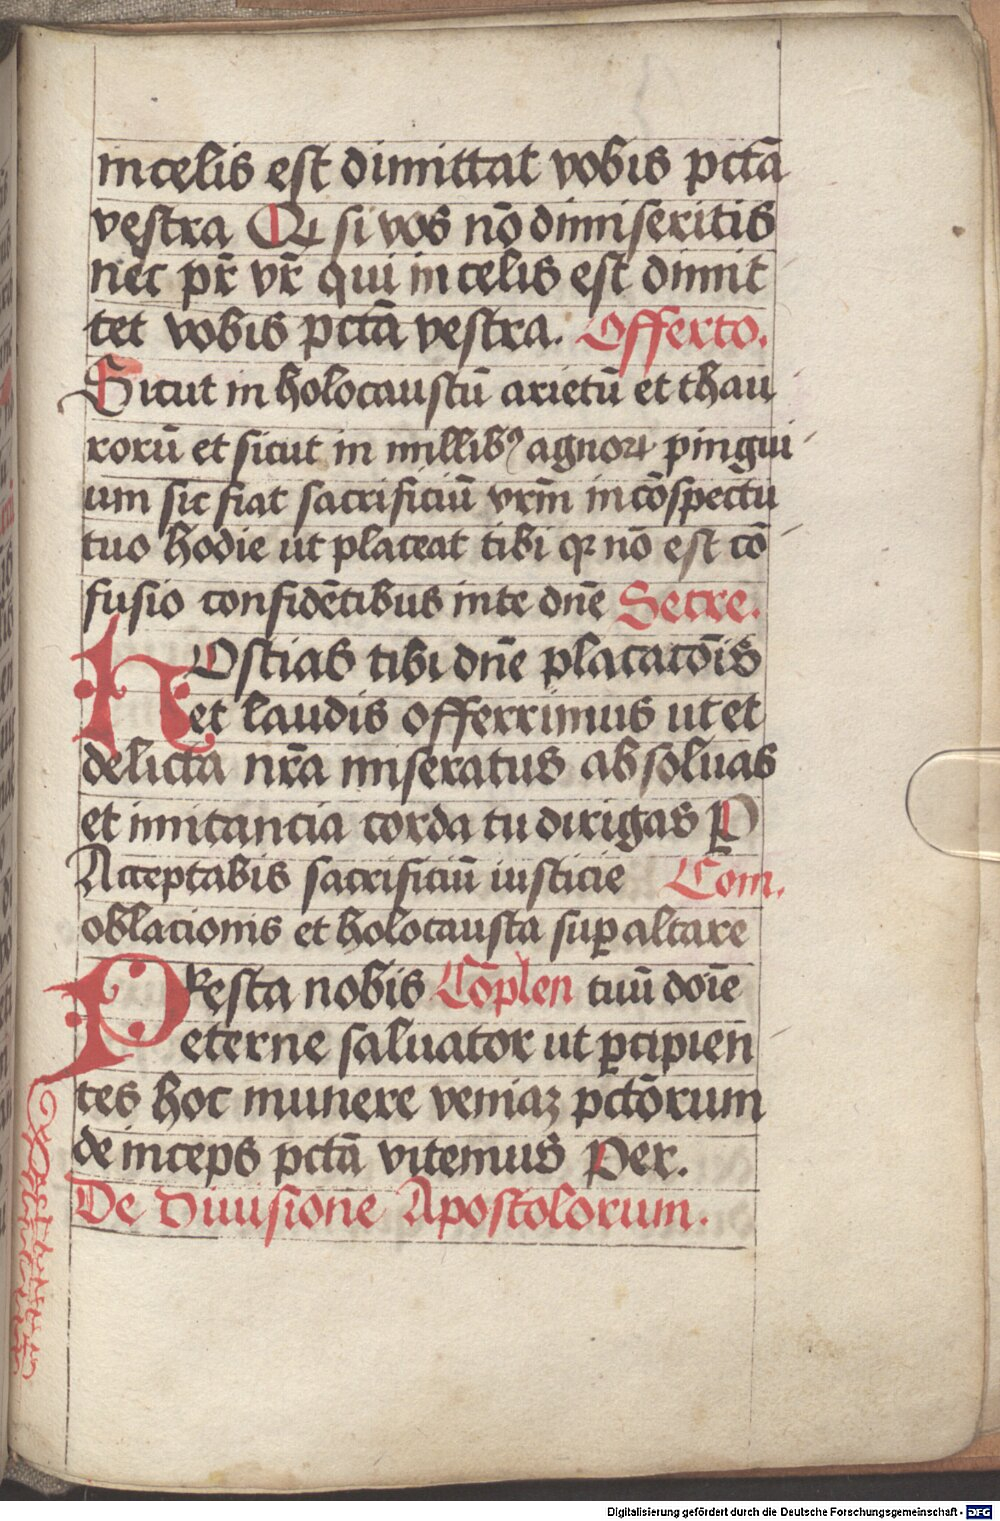 in celis est dimittat vobis pctā
vestra Qd si vos nō dimiseritis
nec pr̄ vr̄ qui in celis est dimit
tet vobis pctā vestra. Offerto.
Sicut in holocaustū arietū et thau
rorū et sicut in millibꝰ agnoꝝ pingui
um sic fiat sacrificiū vrm̄ in cōspectu
tuo hodie ut placeat tibi qꝛ nō est cō
fusio confidētibus in te dn̄e Secre.
HOstias tibi dn̄e placacōis
et laudis offerrimus ut et
delicta nr̄a miseratus absoluas
et imitancia corda tu dirigas P
Acceptabis sacrificiū iusticie Com.
oblacionis et holocausta suꝑ altare
PResta nobis Cōplen tuū doīe
eterne saluator ut ꝑcipien
tes hoc munere veniaꝫ pctōrum
de inceps pctā vitemus Per.
De Diuisione Apostolorum.
Digitalisierung gefördert durch die Deutsche Forschungsgemeinschaft - DFG